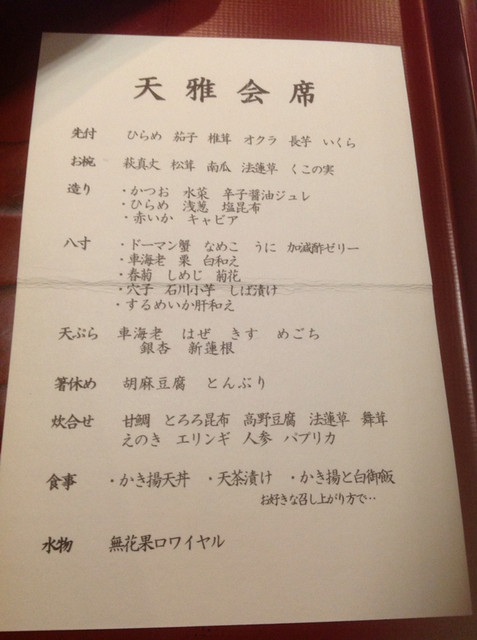 天雅会席
先付 ひらめ 茄子 椎茸 オクラ 長芋 いくら
お椀 萩真丈 松茸 南瓜 法蓮草 くこの実
造り ・かつお 水菜 辛子醤油ジュレ
・ひらめ 浅葱 塩昆布
・赤いか キャビア
八寸 ・ドーマン蟹 なめこ うに 加減酢ゼリー
・車海老 栗 白和え
・春菊 しめじ 菊花
・穴子 石川小芋 しば漬け
・するめいか肝和え
天ぷら 車海老 はぜ きす めごち
銀杏 新蓮根
箸休め 胡麻豆腐 とんぶり
炊合せ 甘鯛 とろろ昆布 高野豆腐 法蓮草 舞茸
えのき エリンギ 人参 パプリカ
食事 ・かき揚天丼 ・天茶漬け ・かき揚と白御飯
お好きな召し上がり方で…
水物 無花果ロワイヤル